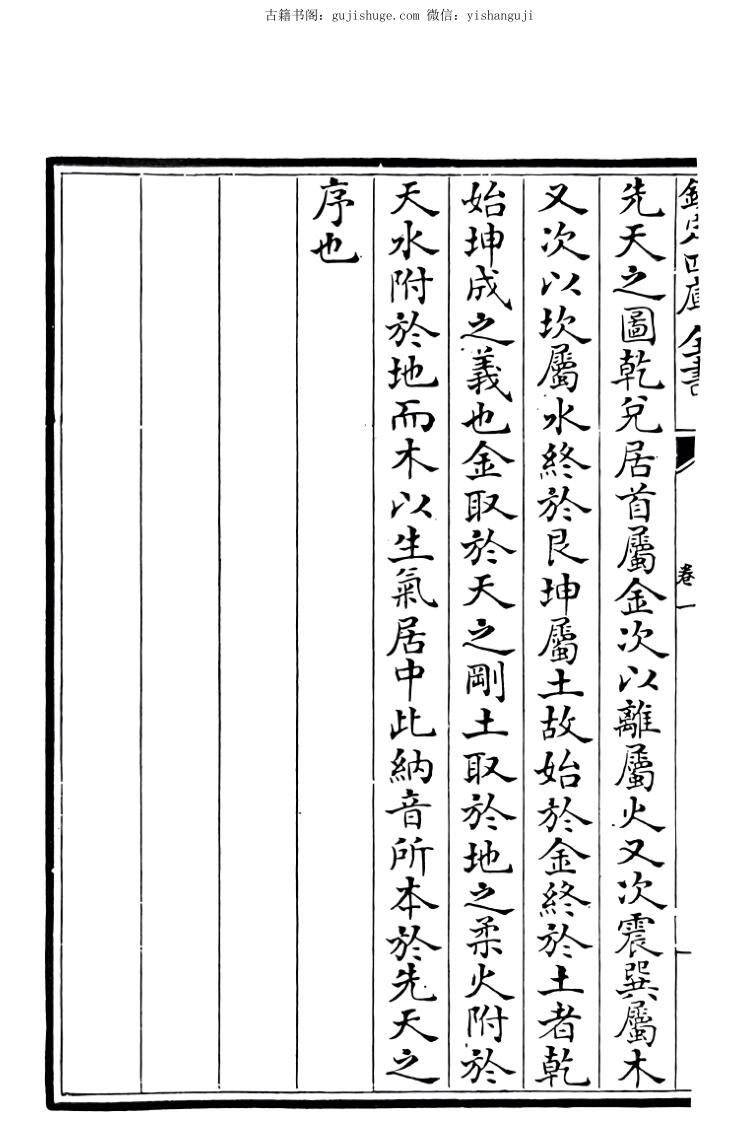 古籍书阁：gujishuge.com 微信：yishanguji
欽定四庫全書
卷一
先天之圖乾兌居首屬金次以離屬火又次震巽屬木
又次以坎屬水終於艮坤屬土故始於金終於土者乾
始坤成之義也金取於天之剛土取於地之柔火附於
天水附於地而木以生氣居中此納音所本於先天之
序也